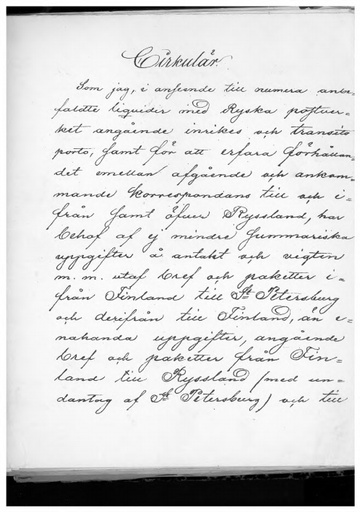 Cirkulär.
Som jag, i anseende till numera anbe-
falldte liquider med Ryska postver-
ket angående inrikes och transito
porto, samt för att erfara förhållan-
det emellan afgående och ankom-
mande korrespondans till och i-
från samt öfver Ryssland, har
behof af ej mindre summariska
uppgifter å antalet och vigten
m. m. utaf bref och paketter i-
från Finland till S:t Petersburg
och derifrån till Finland, än e-
nahanda uppgifter, angående
bref och paketter från Fin-
land till Ryssland (med un-
dantag af S:t Petersburg) och till